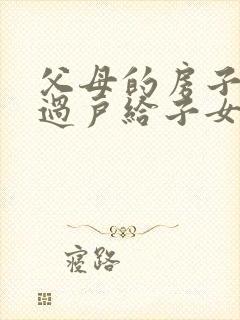 父母的房子
過戶給子女
寢路